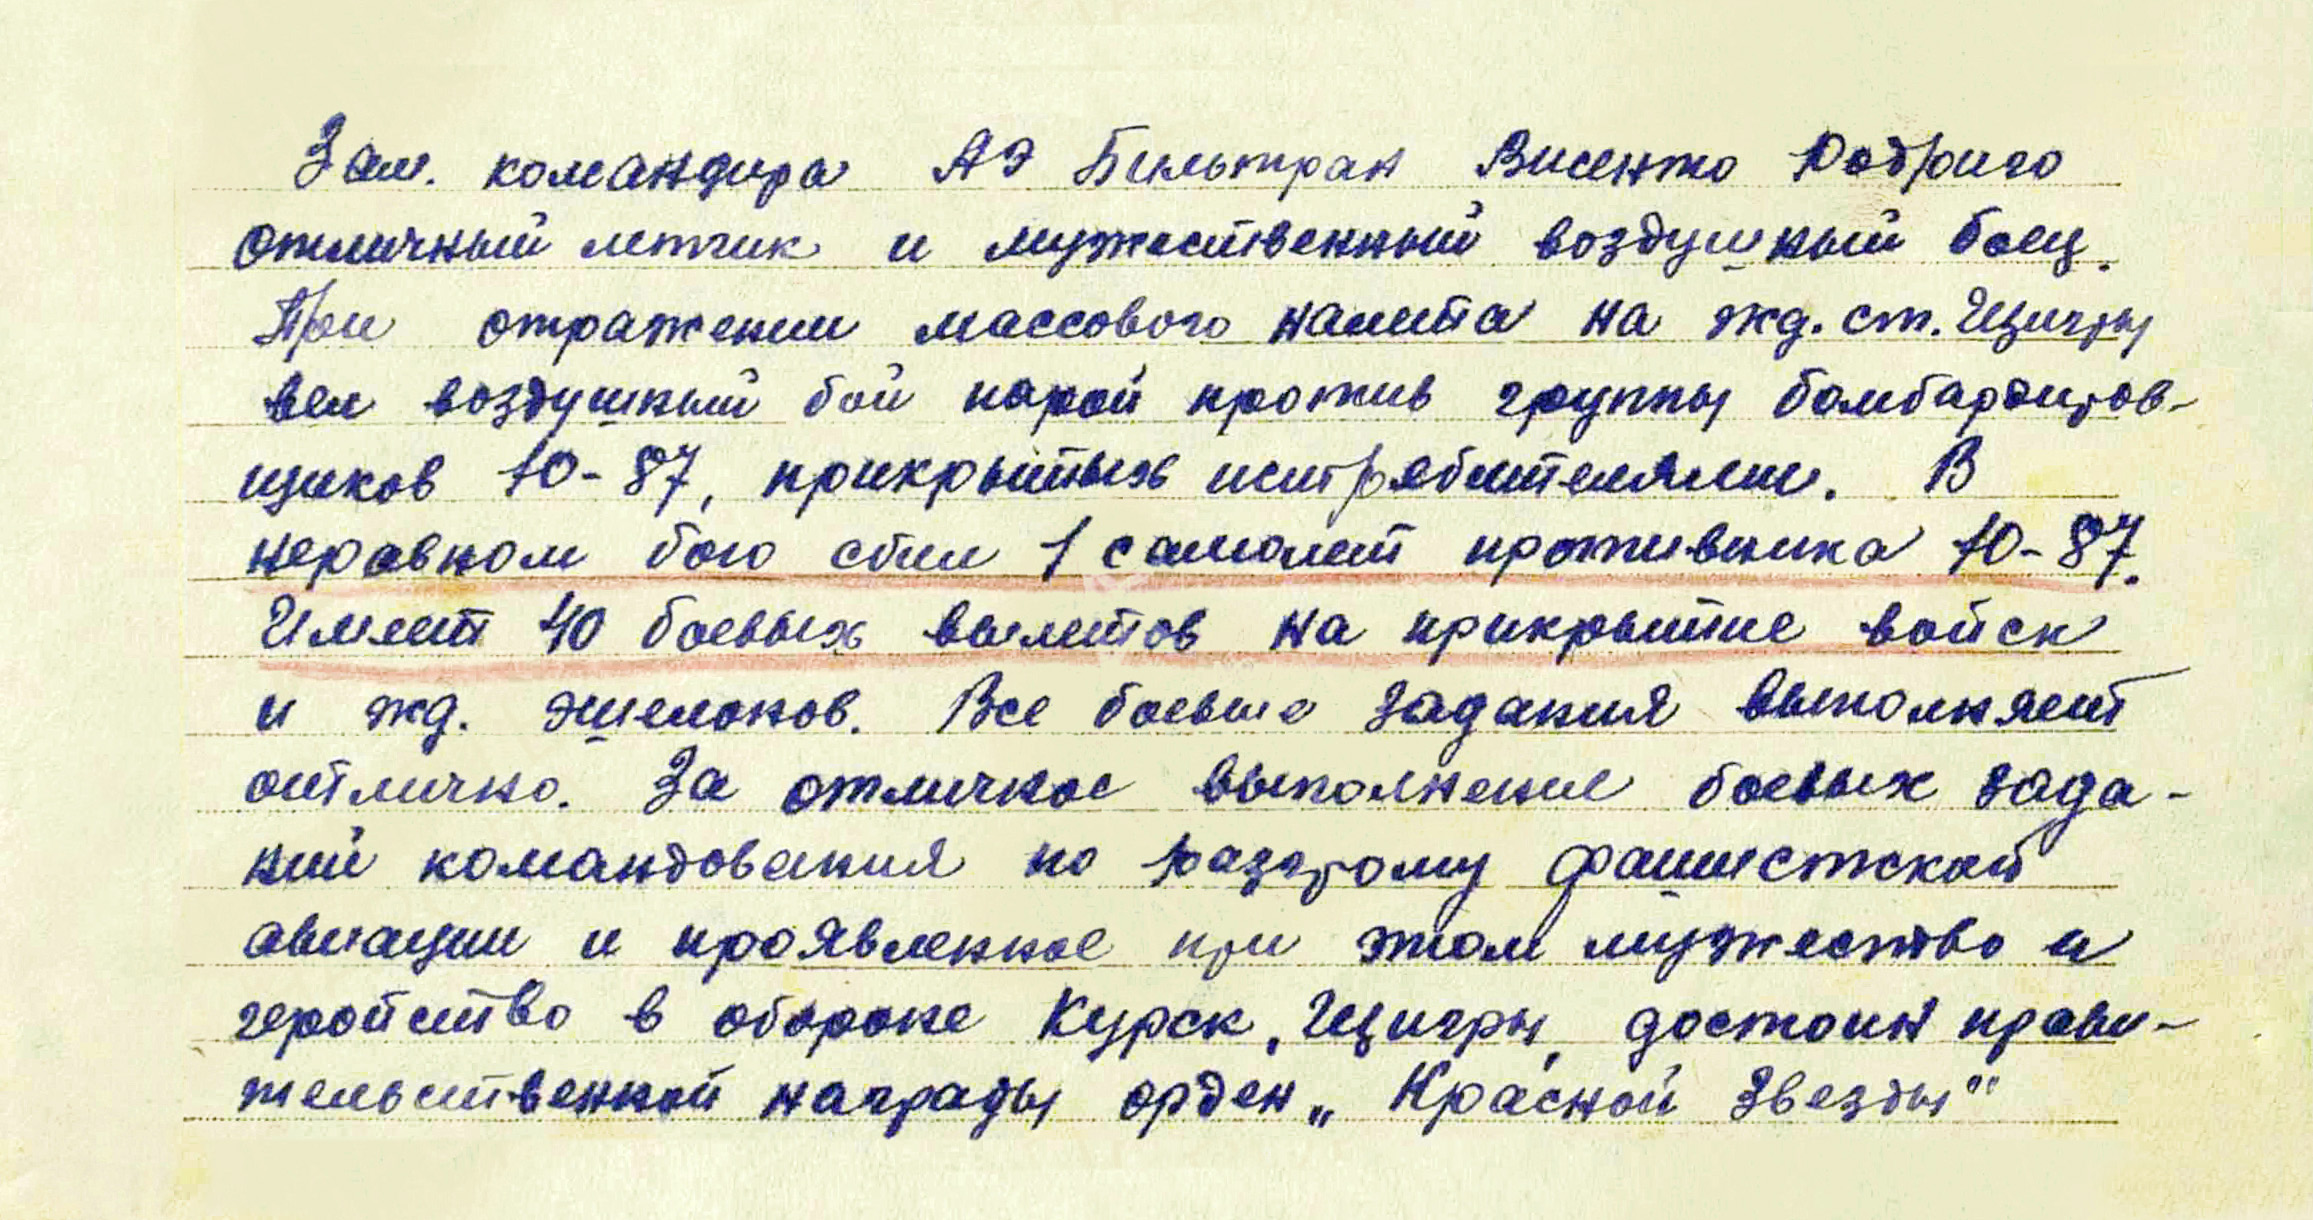 Зам. командира АЭ Бельтран Висенто Родриго
отличный летчик и мужественный воздушный боец.
При отражении массового налета на жд. ст. Щигры
вел воздушный бой парой против группы бомбардиров-
щиков Ю-87, прикрытых истребителями. В
неравном бою сбил 1 самолет противника Ю-87.
Имеет 40 боевых вылетов на прикрытие войск
и жд. эшелонов. Все боевые задания выполняет
отлично. За отличное выполнение боевых зада-
ний командования по разгрому фашистской
авиации и проявленное при этом мужество и
геройство в обороне Курск, Щигры, достоин прави-
тельственной награды орден „Красной Звезды"